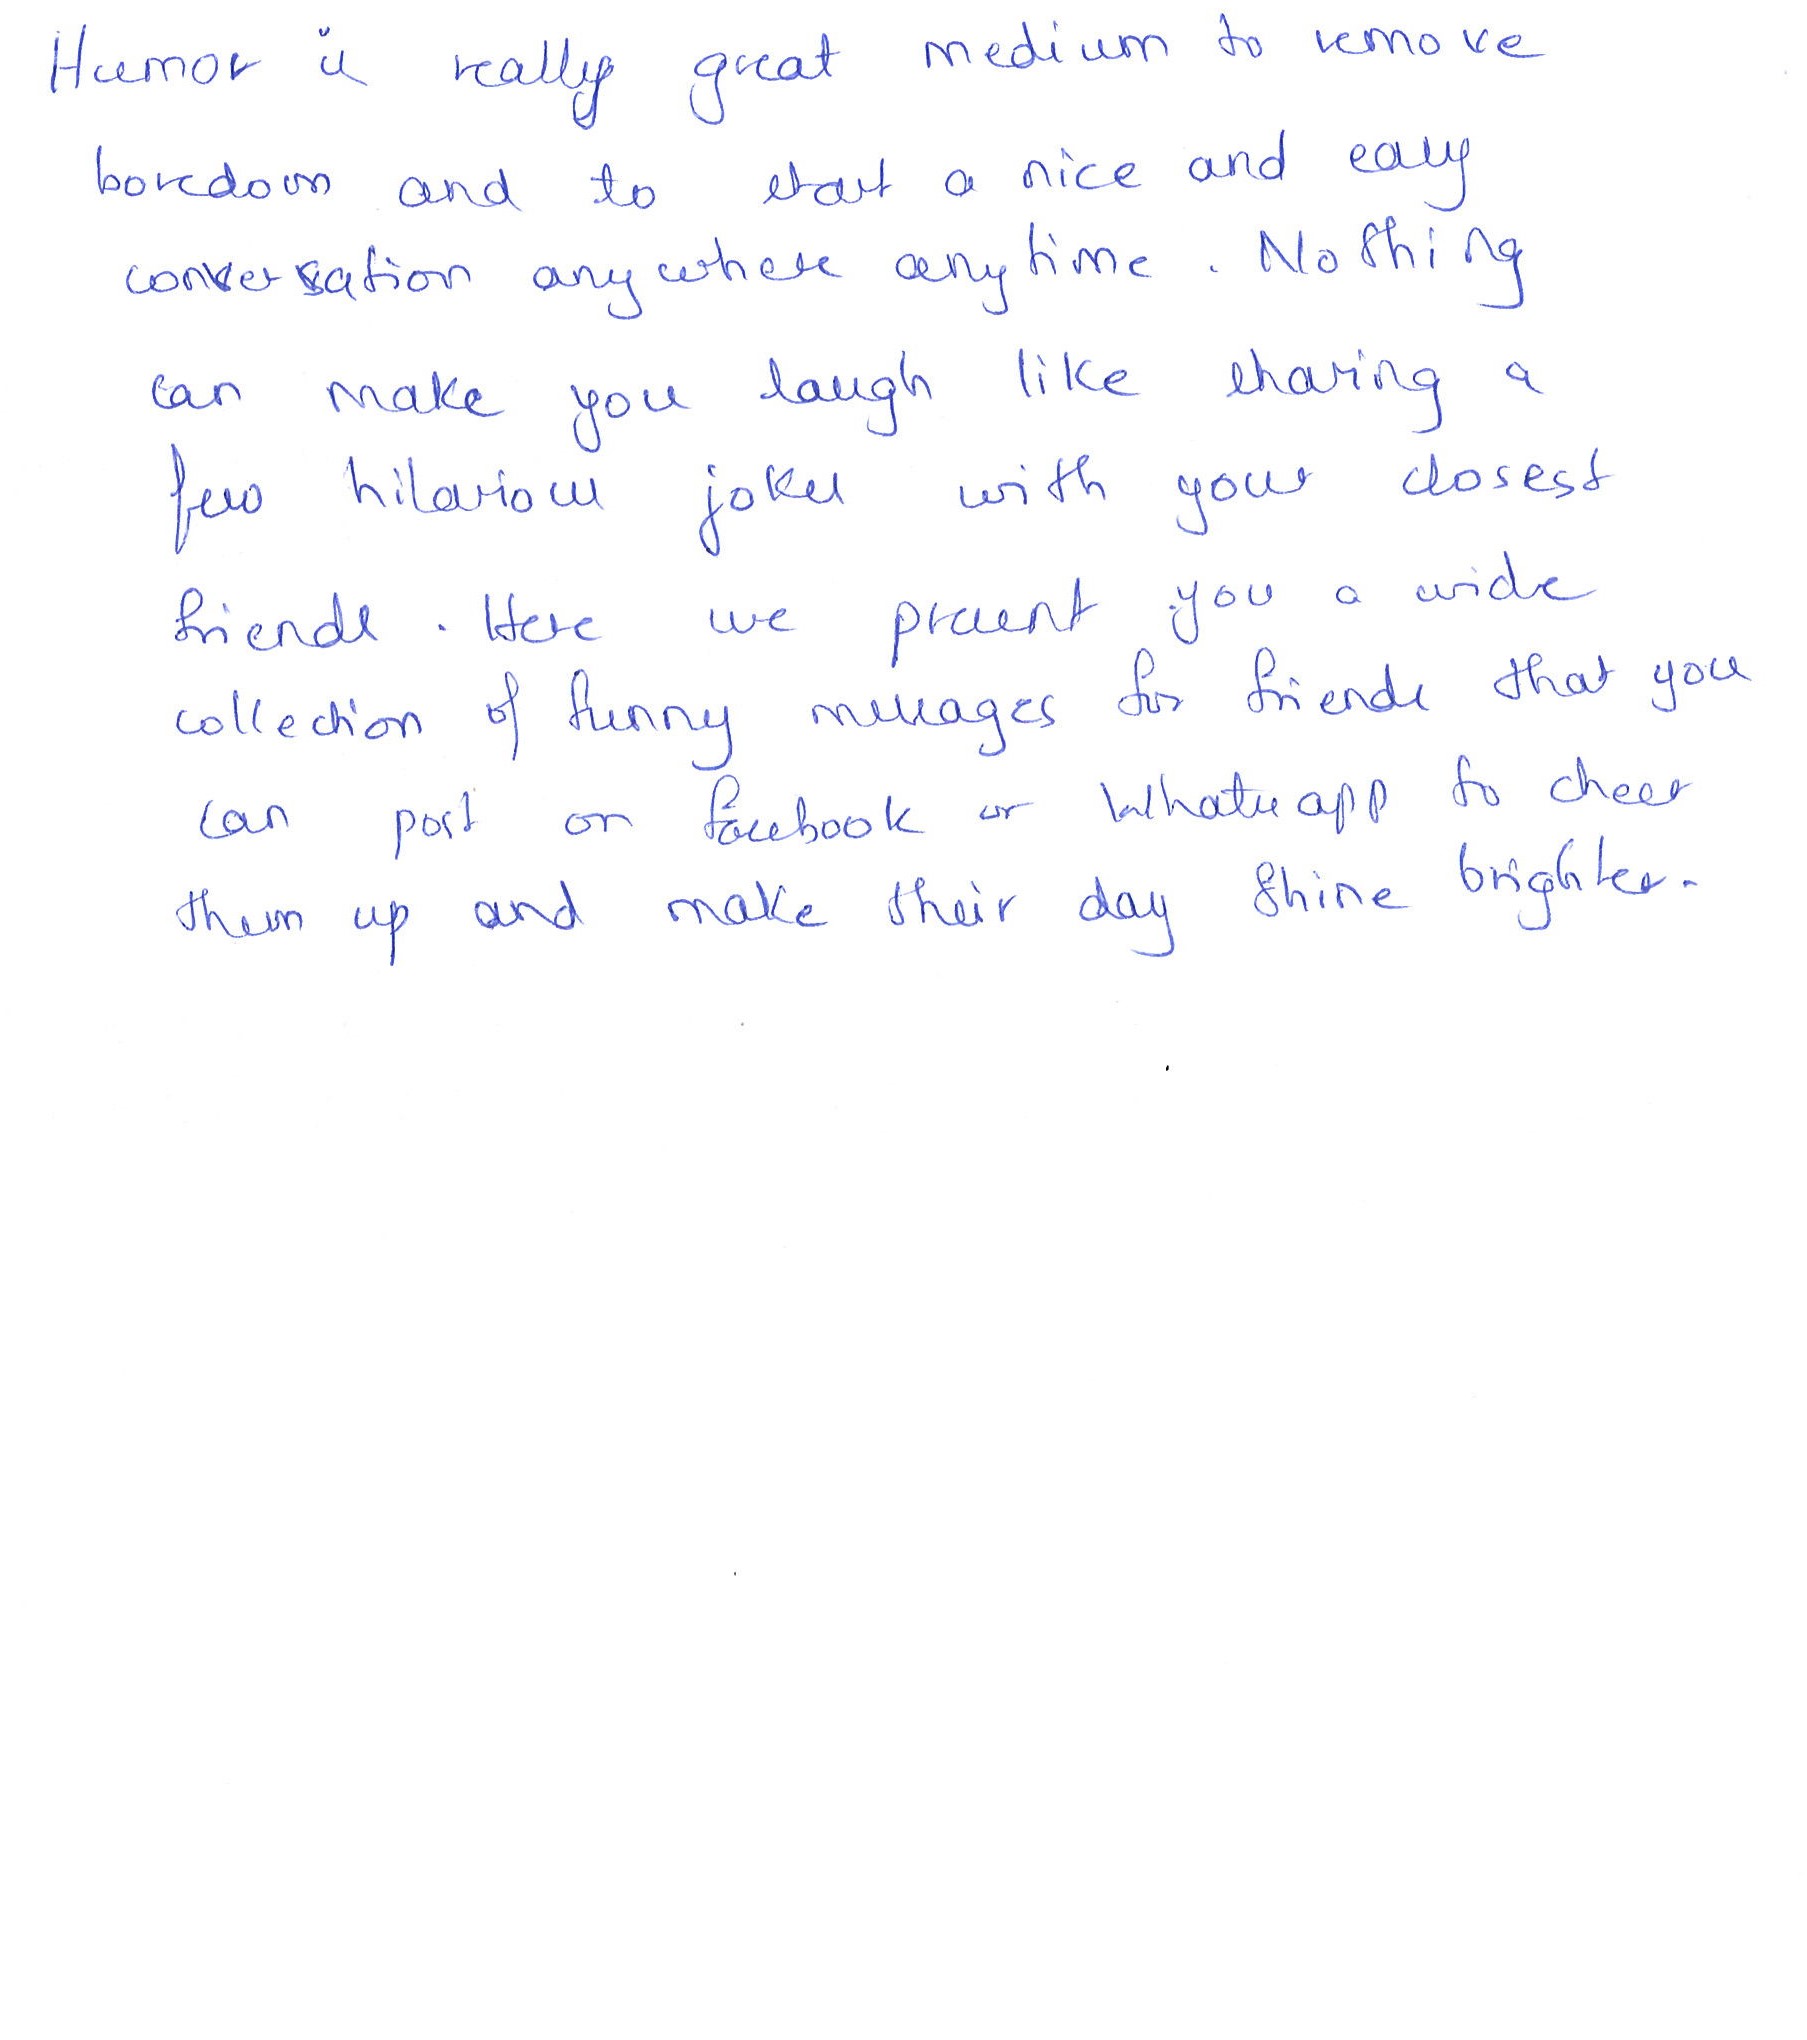 Humor is really great medium to remove
boredom and to start a nice and easy
conversation anywhere anytime. Nothing
can make you laugh like sharing a
few hilarious jokes with your closest
friends. Here we present you a wide
collection of funny messages for friends that you
can post on facebook or Whatsapp to cheer
them up and make their day shine brighter.